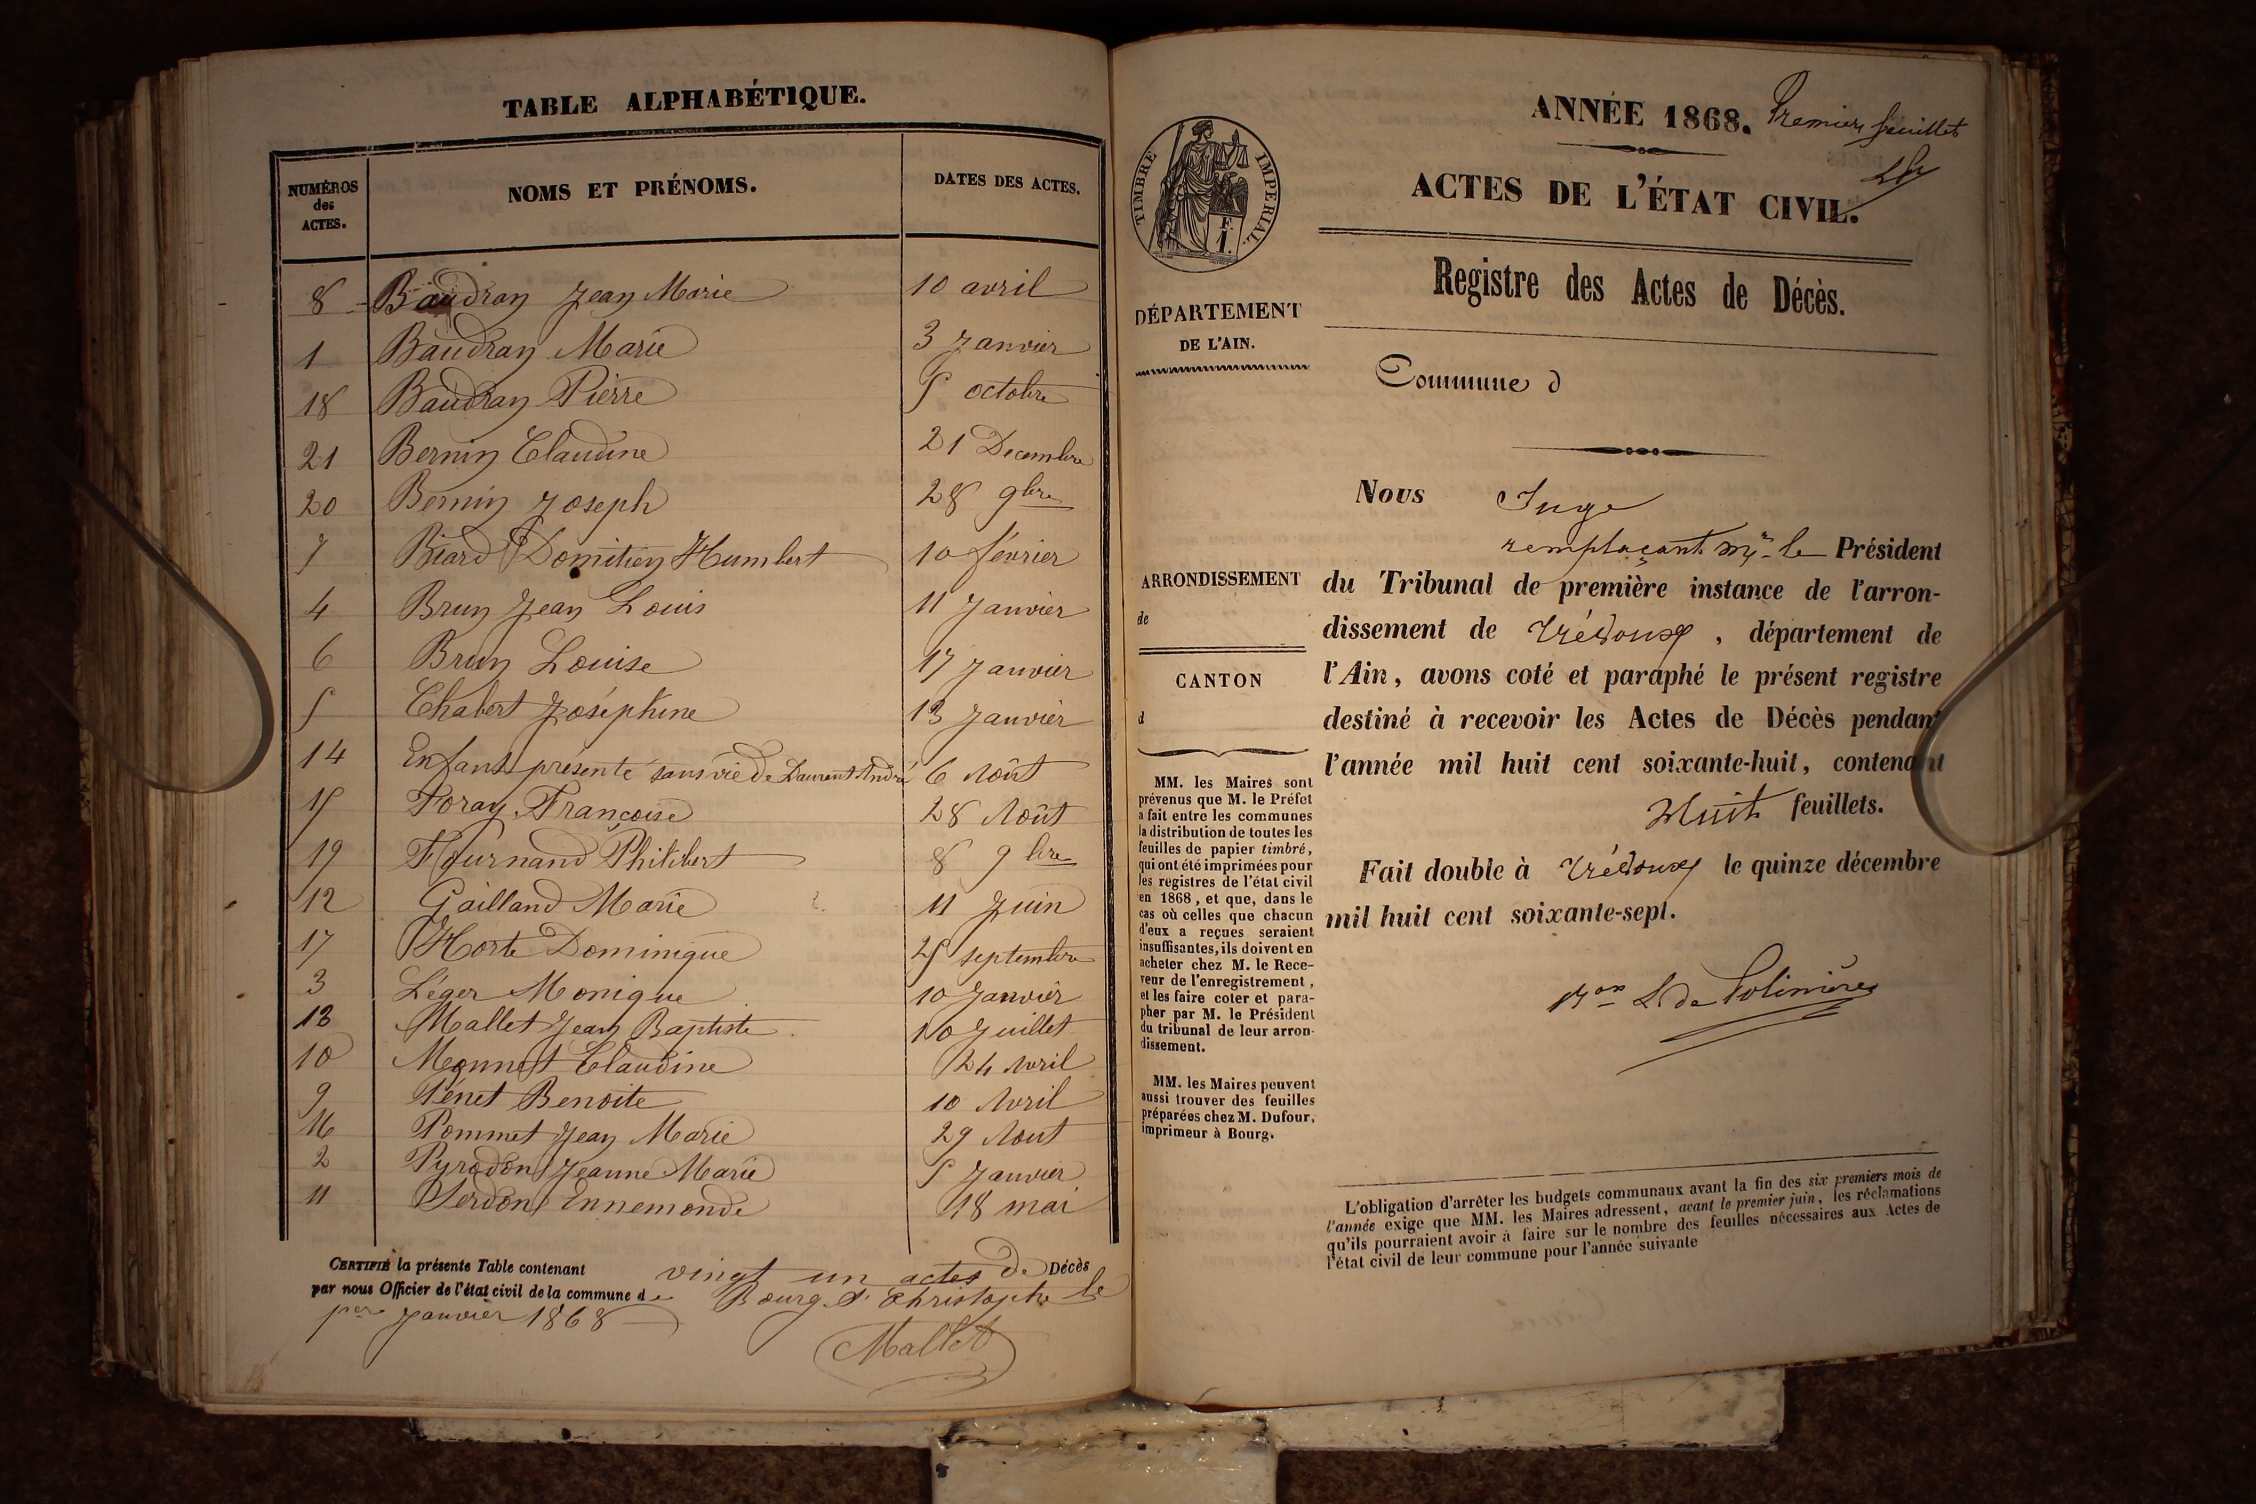 TABLE ALPHABÉTIQUE.
NUMÉROS des ACTES.
NOMS ET PRÉNOMS.
DATES DES ACTES.
8 Baudran Jean Marie 10 avril
1 Baudran Marie 3 Janvier
18 Baudran Pierre 5 octobre
21 Bernin Claudine 21 Decembre
20 Bernin Joseph 28 9bre
7 Biard Domitien Humbert 10 février
4 Brun Jean Louis 11 Janvier
6 Brun Louise 17 Janvier
5 Chabert Joséphine 13 Janvier
14 Enfant présenté sans vie de Laurent André 6 Août
15 Foray Françoise 28 Août
19 Fournand Philibert 8 9bre
12 Gailland Marie 11 Juin
17 Horte Dominique 25 septembre
3 Léger Monique 10 Janvier
13 Mallet Jean Baptiste 10 Juillet
10 Monnet Claudine 24 Avril
9 Pénet Benoite 10 Avril
16 Pommet Jean Marie 29 Aout
2 Pyrodon Jeanne Marie 5 Janvier
11 Serdon Ennemonde 18 mai
CERTIFIÉ la présente Table contenant vingt un actes de Décès
par nous Officier de l'état civil de la commune de Bourg St Christophe le
1er Janvier 1868
Mallet
ANNÉE 1868. Premier feuillet
ACTES DE L'ÉTAT CIVIL.
TIMBRE IMPÉRIAL.
F.
1.
Registre des Actes de Décès.
DÉPARTEMENT
DE L'AIN.
Commune d
Nous Juge
remplaçant Mr le Président
ARRONDISSEMENT
de
du Tribunal de première instance de l'arron-
dissement de Trévoux, département de
l'Ain, avons coté et paraphé le présent registre
destiné à recevoir les Actes de Décès pendant
l'année mil huit cent soixante-huit, contenant
Huit feuillets.
Fait double à Trévoux le quinze décembre
mil huit cent soixante-sept.
CANTON
d
MM. les Maires sont
prévenus que M. le Préfet
a fait entre les communes
la distribution de toutes les
feuilles de papier timbré,
qui ont été imprimées pour
les registres de l'état civil
en 1868, et que, dans le
cas où celles que chacun
d'eux a reçues seraient
insuffisantes, ils doivent en
acheter chez M. le Rece-
veur de l'enregistrement,
et les faire coter et para-
pher par M. le Président
du tribunal de leur arron-
dissement.
MM. les Maires peuvent
aussi trouver des feuilles
préparées chez M. Dufour,
imprimeur à Bourg.
L'obligation d'arrêter les budgets communaux avant la fin des six premiers mois de
l'année exige que MM. les Maires adressent, avant le premier juin, les réclamations
qu'ils pourraient avoir à faire sur le nombre des feuilles nécessaires aux Actes de
l'état civil de leur commune pour l'année suivante